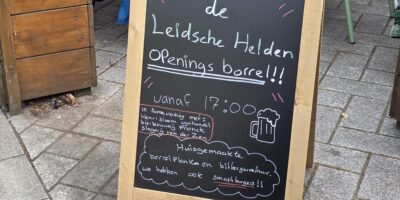 de
Leidsche Helden
Openings borrel!!
vanaf 17:00
in samenwerking met:
bierbrouwerij Pronck
slagerij van der Zon
Huisgemaakte
borrelplanken en bittergarnituur.
we hebben ook smashburgers!!